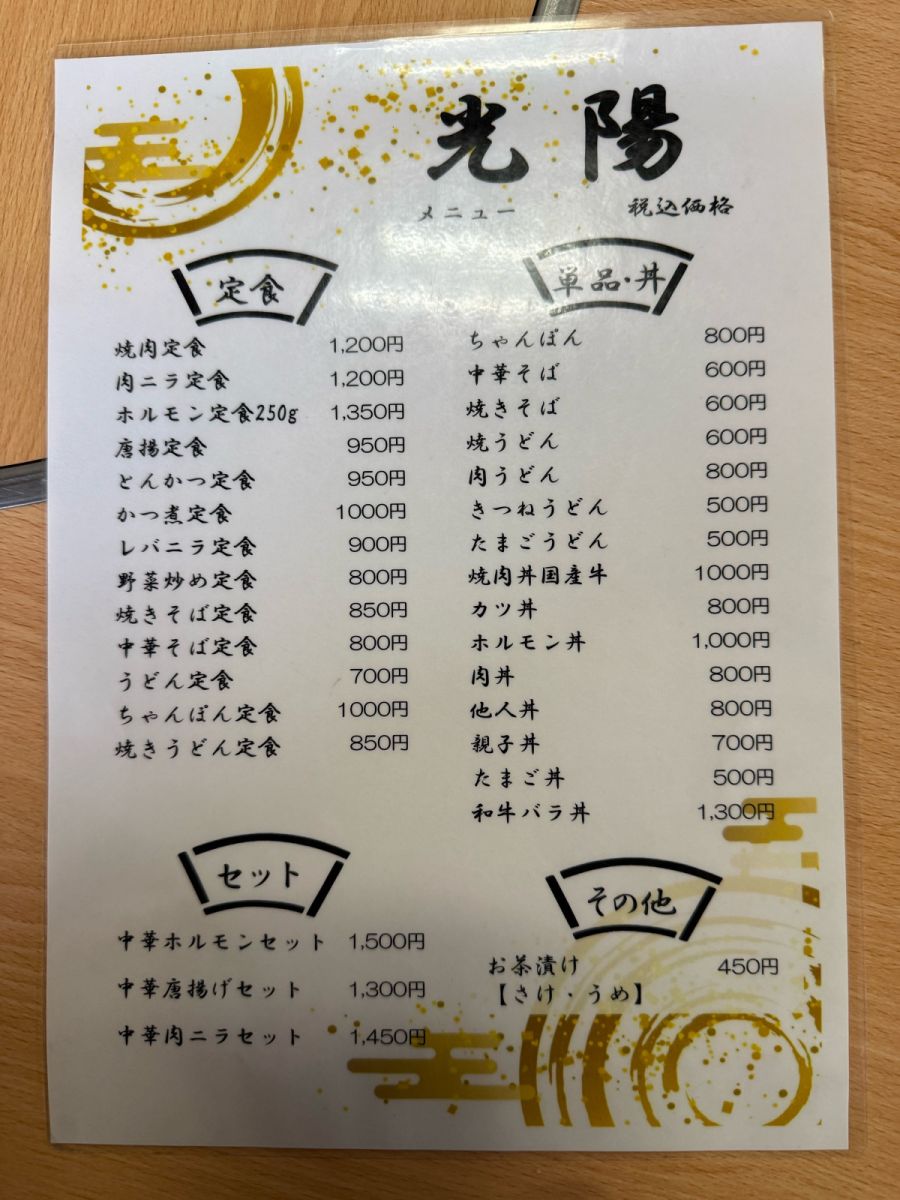 光陽
メニュー 税込価格
定食
焼肉定食 1,200円
肉ニラ定食 1,200円
ホルモン定食250g 1,350円
唐揚定食 950円
とんかつ定食 950円
かつ煮定食 1000円
レバニラ定食 900円
野菜炒め定食 800円
焼きそば定食 850円
中華そば定食 800円
うどん定食 700円
ちゃんぽん定食 1000円
焼きうどん定食 850円
単品・丼
ちゃんぽん 800円
中華そば 600円
焼きそば 600円
焼うどん 600円
肉うどん 800円
きつねうどん 500円
たまごうどん 500円
焼肉丼国産牛 1000円
カツ丼 800円
ホルモン丼 1,000円
肉丼 800円
他人丼 800円
親子丼 700円
たまご丼 500円
和牛バラ丼 1,300円
セット
中華ホルモンセット 1,500円
中華唐揚げセット 1,300円
中華肉ニラセット 1,450円
その他
お茶漬け 450円
【さけ・うめ】